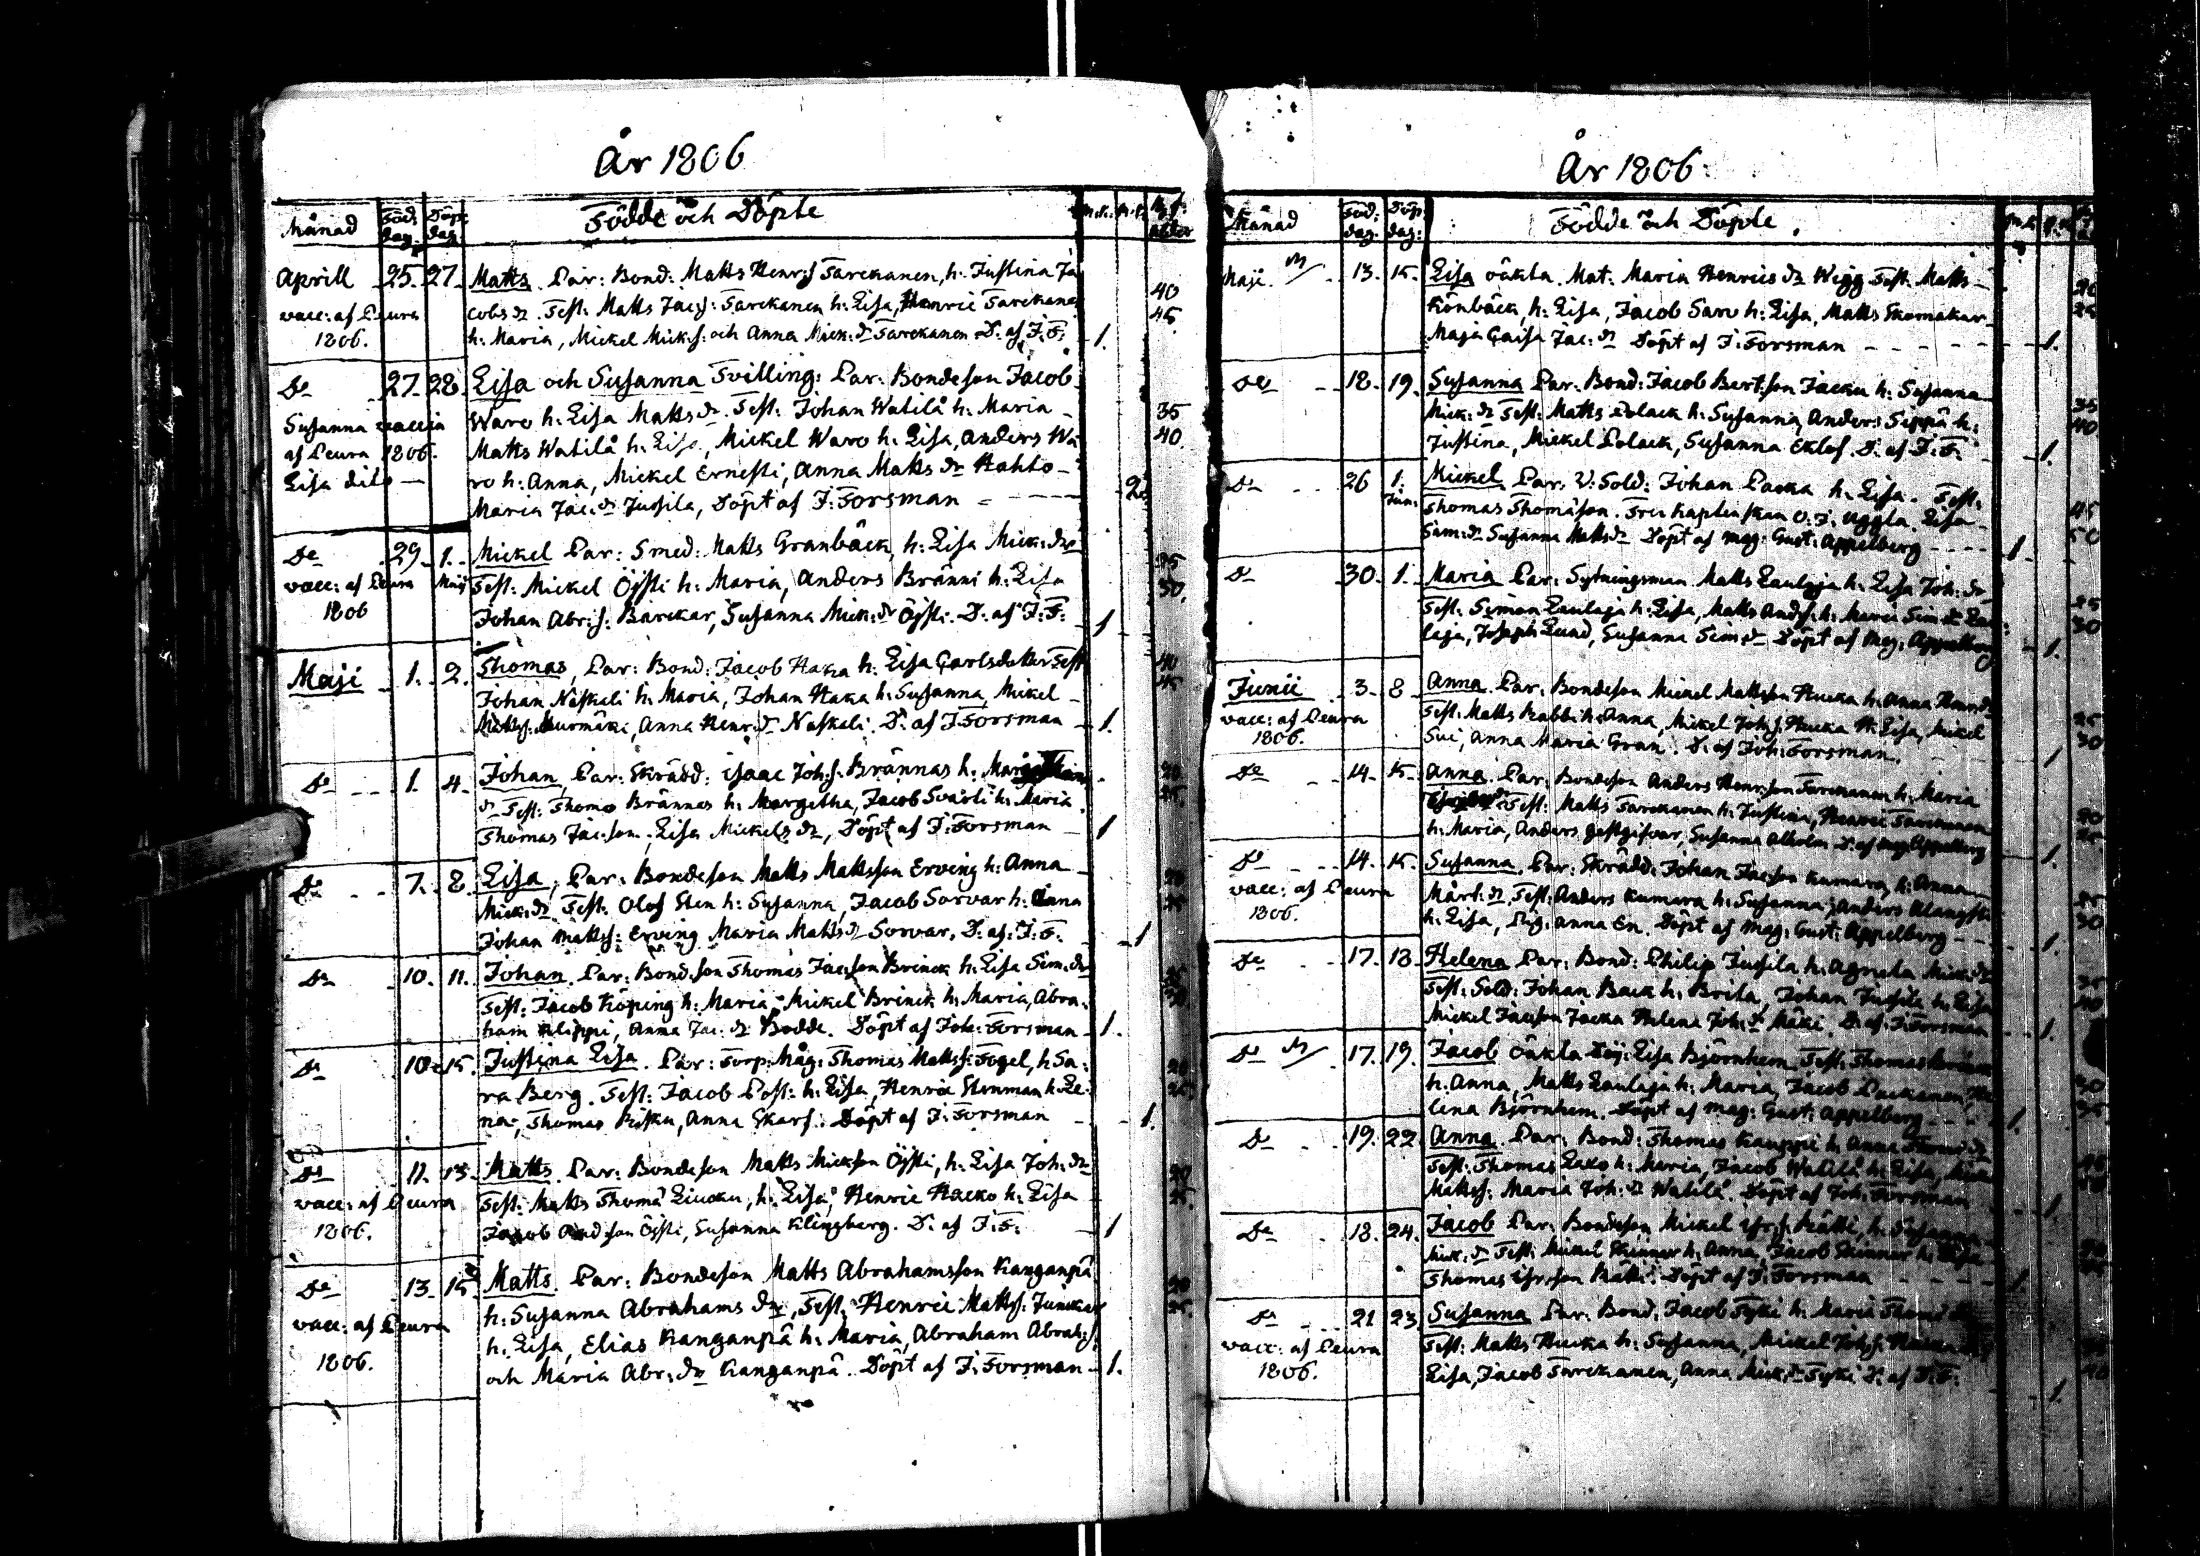 År 1806
Månad Föd: dag. Döp: dag. Födde och Döpte
Aprill 25. 27. Matts. Par: Bond: Matts Henr:s Sarckanen, h: Justina Ja
vacc: af Peura cobs dr. Test. Matts Jac:s: Sarckanen h: Lisa, Henric Sarckane 40 45.
1806. h: Maria, Mickel Mick:s: och Anna Mick: dr Sarckanen D: af J: F: 1.
De 27. 28. Lisa och Susanna Tvilling: Par: Bondeson Jacob
Waro h: Lisa Matts dr. Test. Johan Watilå h: Maria 35
Susanna vaccin
af Peura 1806. Matts Watilå h: Lisa, Mickel Waro h: Lisa, Anders Wa 40
Lisa dito ro h: Anna, Mickel Ernesti, Anna Matts dr Hahto
Maria Jac: dr Jussila, Döpt af J: Forsman 2.
De 29. 1. Maij Mickel Par: Smed: Matts Granbäck, h: Lisa Mick: dr
vacc: af Peura Test: Mickel Öysti h: Maria, Anders Bränni h: Lisa 30.
1806 Johan Abr:s: Barckar, Susanna Mick: dr Öysti. D: af J: F: 1
Maji 1. 2. Thomas, Par: Bond: Jacob Haka h: Lisa Carlsdotter Test 40
Johan Näskali h: Maria, Johan Haka h: Susanna, Mikel 45
Matts: Anna Henr: dr Näskali. D: af J: Forsman 1.
De 1. 4. Johan, Par: Skrädd: Isaac Joh:s: Brännas h:
dr Test: Thomas Brännas h: Margetha, Jacob Svarli h: Maria 25.
Thomas Jac:son, Lisa Mickels dr, Döpt af J: Forsman 1
De 7. 8. Lisa, Par: Bondeson Matts Mattsson Erving h: Anna
Mick: dr. Test: Olof Sten h: Susanna, Jacob Sorvar h: Anna
Johan Matts: Erving Maria Matts dr Sorvar, D: af: J: F: 1
De 10. 11. Johan, Par: Bond:son Thomas Jac:son Brinck h: Lisa Sim: dr
Test: Jacob Köping h: Maria, Mickel Brinck h: Maria, Abra-
ham Klippi, Anna Jac: dr Bodde. Döpt af Joh: Forsman 1.
De 10. 15. Justina Lisa. Par: Torp:Måg: Thomas Matts: Fogel, h: Sa: 20
ra Berg. Test: Jacob Post: h: Lisa, Henric Stenman h: Le- 25
na, Thomas Pitku, Anna Skarf. Döpt af J: Forsman 1.
De 11. 13. Matts Par: Bondeson Matts Mickson Öysti, h: Lisa Joh: dr 20
vacc: af Peura Test: Matts Thoma Liucku, h: Lisa, Henric Hacko h: Lisa 25.
1806. Jacob And:son Öysti, Susanna Klingberg. D: af J: F: 1
De 13. 15 Matts. Par: Bondeson Matts Abrahamsson Kanganpä 20
vacc: af Peura h: Susanna Abrahams dr, Test, Henric Matts: Junckar 25.
h: Lisa, Elias Kanganpä h: Maria, Abraham Abrah:s:
1806. och Maria Abr: dr Kanganpä. Döpt af J: Forsman 1.
År 1806.
Månad Föd: dag. Döp: dag: Födde och Döpte.
Maji 13. 15. Lisa oäkta. Mat: Maria Henrics dr Wigg Test. Matts
Könbäck, h: Lisa, Jacob Saro h: Lisa, Matts Skomakar
Maja Caisa Jac: dr Döpt af J: Forsman 1.
De 18. 19. Susanna Par: Bond: Jacob Bert:son Jacku h: Susanna
Mick: dr Test: Matts Polack h: Susanna, Anders Seppä h: 35
Justina, Mickel Polack, Susanna Eklof. D. af J: F: 40 1.
De 26 1. Jun: Mickel Par: V: Sold: Johan Packa h: Lisa. Test.
Thomas Thomäson. Fru Kapten:skan O: J: Uggla. Lisa 45
Sim: dr Susanna Matts dr Döpt af Mag: Gust: Appelberg 50 1
De 30. 1. Maria Par: Sytningsman Matts Laulaja h: Lisa Joh: dr
Test. Simon Laulaja h: Lisa, Matts And:s: h: Maria Sim: dr Lau 25
laja, Joseph Lund, Susanna Sim: dr Döpt af Mag: Appelberg 30 1.
Junii 3. 8. Anna. Par: Bondeson Mickel Mattsson Hucka h: Anna Henr: dr
vacc: af Peura Test. Matts Rabbi h: Anna, Mickel Joh:s: Hucka h: Lisa, Mickel 25
1806. Sui, Anna Maria Gran. D: af Joh: Forsman. 30 1
De 14. 15. Anna. Par: Bondeson Anders Henr:son Sarckanen h: Maria
Test: Matts Sarckanen h: Justina, Henric Sarckanen 20
h: Maria, Anders Gestgifvar, Susanna Alholm D: af Mag: Appelberg 1.
De 14. 15. Susanna. Par: Skrädd: Johan Jacson Kumara h: Anna
vacc: af Peura Mårt: dr, Test: Anders Kumara h: Susanna, Anders 25
1806. h: Lisa, Pig: Anna En. Döpt af Mag: Gust: Appelberg 30 1.
De 17. 18. Helena Par: Bond: Philip Jussila h: Agneta Mick: dr
Test: Sold: Johan Back h: Brita, Johan Jussila h: Lisa
Mickel Jacson Jacka Helena Joh: dr Mäki. D. af J: Forsman 1.
De 17. 19. Jacob oäkta Pig: Lisa Björnhem Test: Thomas
h: Anna, Matts Laulaja h: Maria, Jacob Packanen, He 30
lena Björnhem. Döpt af Mag: Gust: Appelberg 35 1.
De 19. 22 Anna Par: Bond: Thomas Kauppi h: Anna Thom: dr
Test: Thomas Laxo h: Maria, Jacob Watilå h: Lisa, Mick
Matts: Maria Joh: dr Watilå Döpt af Joh: Forsman 1.
De 18. 24. Jacob Par: Bondeson Mickel Isr:s: Rätti, h: Susanna
Mick: dr Test: Mickel Skinnar h: Anna, Jacob Skinnar h: Lisa
Thomas Isr:son Rätti. Döpt af J: Forsman 1.
De 21 23. Susanna Par: Bond: Jacob Syki h: Maria Thom: dr
vacc: af Peura Test: Matts Hucka h: Susanna, Mickel Joh:s: Hucka
1806. Lisa, Jacob Sarckanen, Anna Mick: dr Syki D: af J: F: 1.